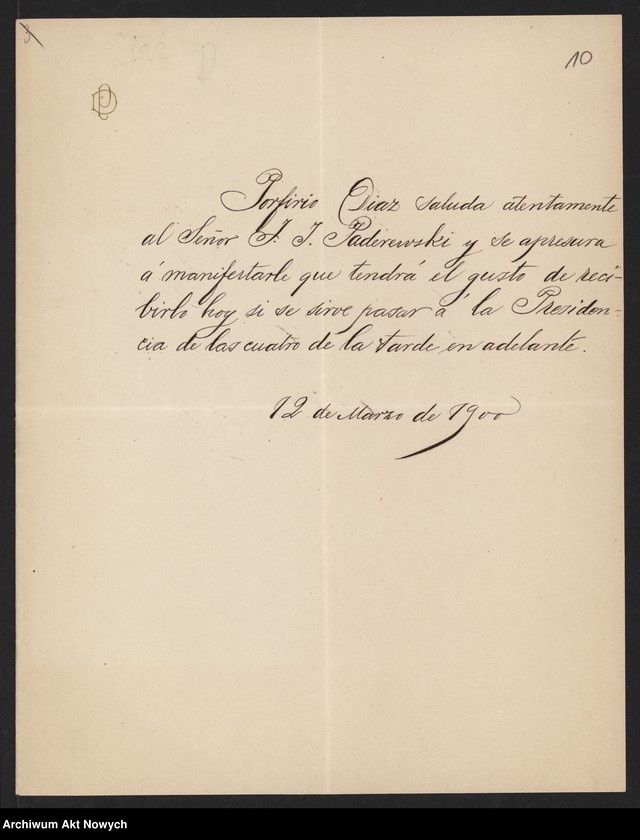 10
PD
Porfirio Diaz saluda atentamente
al Señor I. J. Paderewski y se apresura
á manifestarle que tendrá el gusto de reci-
birlo hoy si se sirve pasar á la Presiden-
cia de las cuatro de la tarde en adelante.
12 de Marzo de 1900
Archiwum Akt Nowych